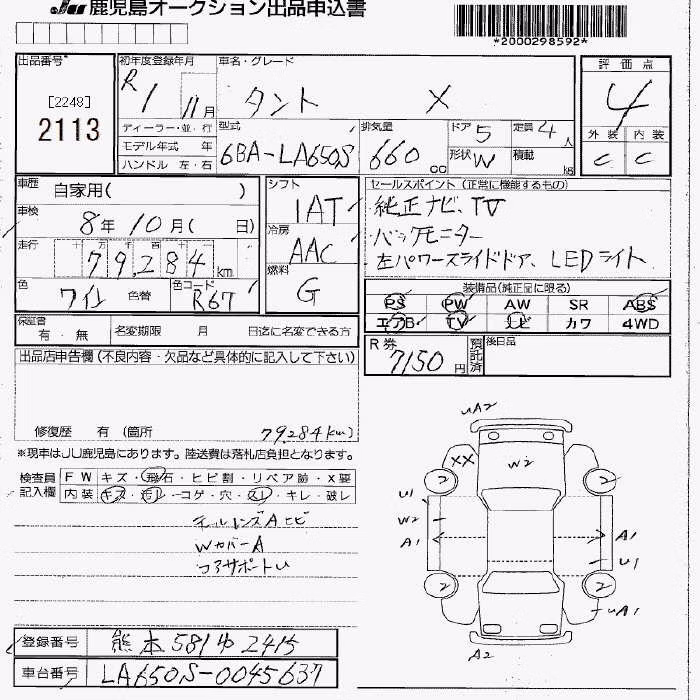 JU 鹿児島オークション出品申込書
*2000298592*
出品番号*
[2248]
2113
初年度登録年月
R1 11月
車名・グレード
タント X
評価点
4
外装 内装
C C
ディーラー・並・行
モデル年式 年
ハンドル 左・右
型式
6BA-LA650S
排気量
660cc
ドア 5
定員 4人
形状 W
積載 kg
車歴 自家用( )
車検 8年10月( 日)
走行 79,284km
色 ワイン 色替
色コード R67
シフト
IAT
冷房
AAC
燃料
G
セールスポイント(正常に機能するもの)
純正ナビ、TV
バックモニター
左パワースライドドア、LEDライト
装備品(純正品に限る)
PS PW AW SR ABS
エアB TV ナビ カワ 4WD
保証書
有・無
名変期限 月 日迄に名変できる方
R券
7150円
預託済
後日品
出品店申告欄(不良内容・欠品など具体的に記入して下さい)
修復歴 有(箇所 79,284km)
※現車はJU鹿児島にあります。陸送費は落札店負担となります。
検査員記入欄
FW キズ・飛石・ヒビ割・リペア跡・X要
内装 キズ・汚レ・コゲ・穴・スレ・キレ・破レ
テールレンズAヒビ
WカバーA
コアサポートU
UA2
XX
W2
2 2
U1
W2
A1
A1
U1
2 2
UA1
A2
登録番号 熊本 581 や 2415
車台番号 LA650S-0045637